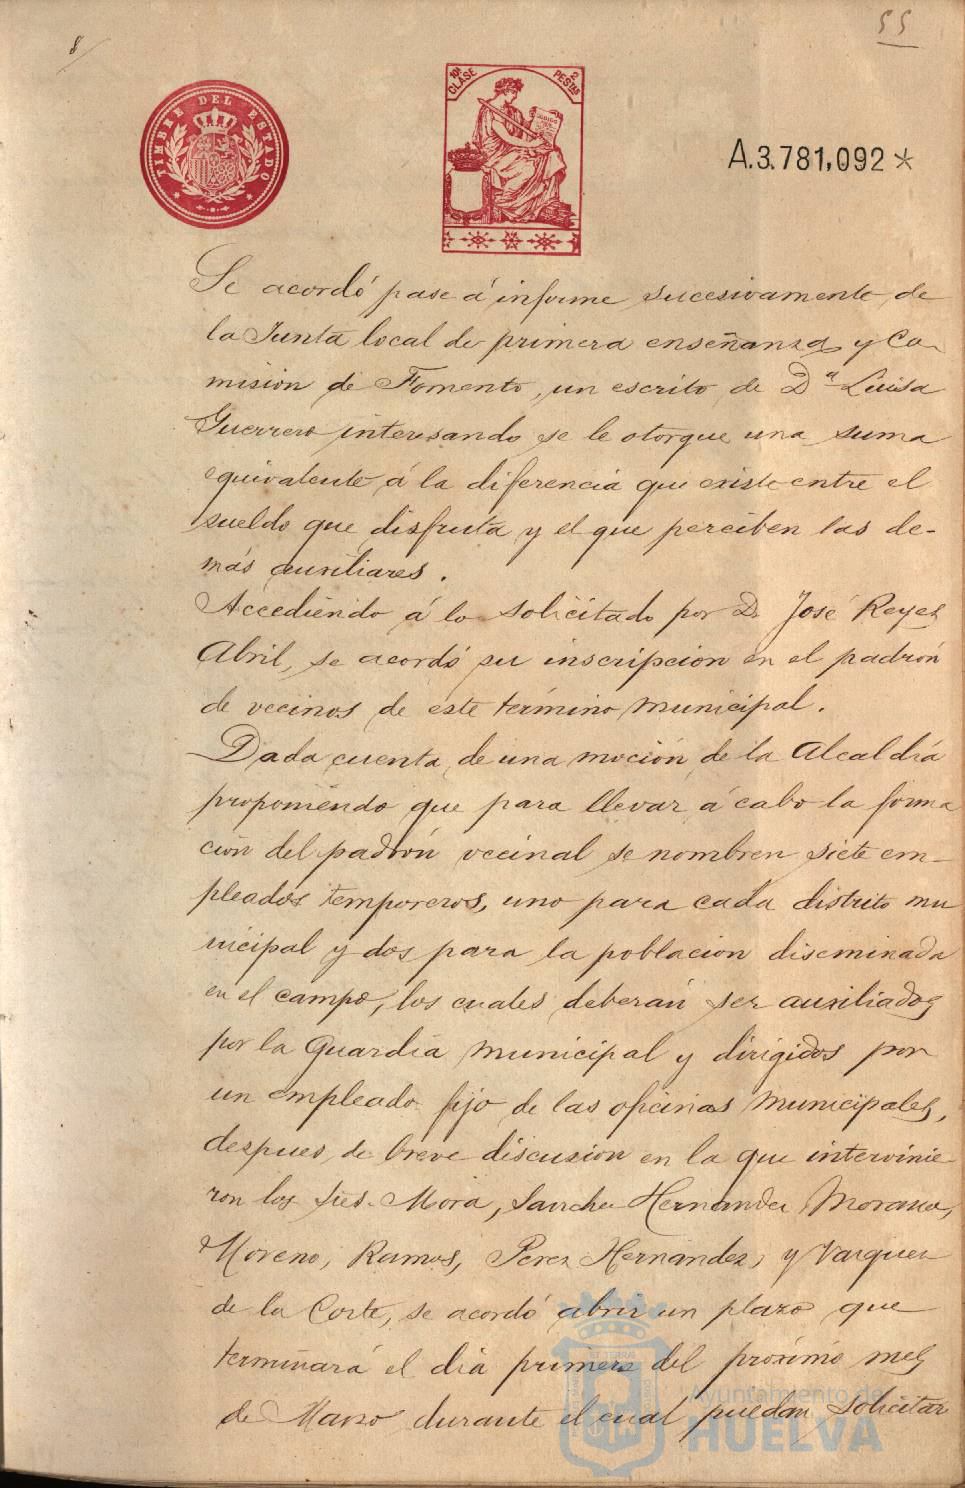 8/
55
TIMBRE DEL ESTADO
10ª CLASE
2 PESTAS
A.3.781,092*
Se acordó pase á informe sucesivamente de
la Junta local de primera enseñanza y Co-
misión de Fomento, un escrito de Dª Luisa
Guerrero interesando se le otorgue una suma
equivalente á la diferencia que existe entre el
sueldo que disfruta y el que perciben las de-
más auxiliares.
Accediendo á lo solicitado por D. José Reyes
Abril, se acordó su inscripción en el padrón
de vecinos de este término municipal.
Dada cuenta de una moción de la Alcaldía
proponiendo que para llevar á cabo la forma
ción del padrón vecinal se nombren siete em-
pleados temporeros, uno para cada distrito mu
nicipal y dos para la población diseminada
en el campo, los cuales deberán ser auxiliados
por la Guardia municipal y dirigidos por
un empleado fijo de las oficinas municipales,
despues de breve discusion en la que intervinie-
ron los Sres. Mora, Sanchez Hernandez, Morano,
Moreno, Ramos, Perez Hernández, y Vazquez
de la Corte, se acordó abrir un plazo que
terminará el dia primero del próximo mes
de Marzo durante el cual puedan solicitar
Ayuntamiento de
HUELVA